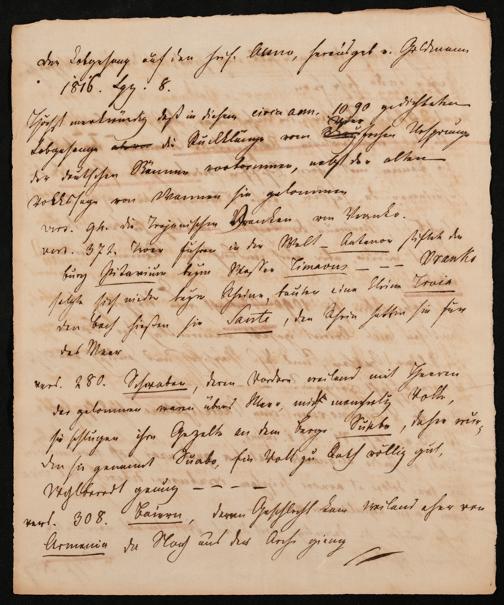 Der Lobgesang auf den heil. Anno, herausgeb v. Goldmann
1816. Lpz. 8.
Höchst merkwürdig daß in diesem circa ann. 1090 gedichteten
Lobgesange die Rückklänge vom Ursprunge
der deutschen Stämme vorkommen, nebst der alten
Volkssage von wannen sie gekommen
vers. die Trojanischen Franken von Franko.
vers. 372. fuhren in der Welt – Antenor stiftet die
burg Pitavium beym Wasser Timavus – – – Franko
setzte sich nieder beym Rheine, bauten eine kleine Troia
den bach hießen sie Sante, den Rhein hatten sie für
das Meer
vers. 280. Schwaben, deren Vordern weiland mit Heeren
dar gekommen waren übers Meer, mit Volk,
sie schlugen ihre Gezelte an dem berge Suebo, daher wur¬
den sie genannt Suabo, Ein Volk zu Rath völlig gut,
genug – – – –
vers. 308. Baiern, deren Geschlecht kam weiland eher von
Armenia da Noah aus der Arche gieng